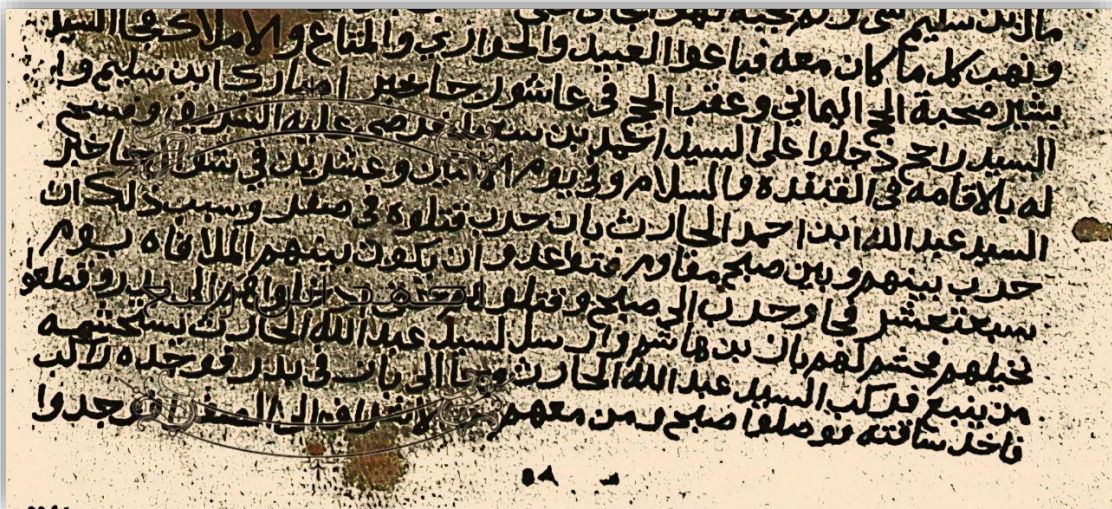 ونهب كل ما كان معه فباعوا العبيد والجوازي والمتاع والاملاك فجا السيد
بشير صحبة الحج اليماني وعقب الحج في عاشور جا خبر امبارك ابن سليم وا
السيد راجح دخلوا على السيد احمد بن عليه الشريف وسمح
له بالاقامه في القنفده والسلام وفي يوم الاثنين وعشرين في جا خبر
السيد عبد الله ابن احمد الحارث بان حرب قتلوه في صفر وسبب ذلك ان
حرب بينهم وبين صبح مقاوم فتواعدوا ان يكون بينهم الملاقاه يوم
سبعتعشر في وحرب الى صبح وقتلوا وقطعو
نخيلهم فحشم لهم بان بن هاشم وارسل لسيد عبد الله الحارث يستحشمه
من ينبع فركب السيد عبد الله الحارث وجا الى بان في بدر فوجده راكب
فاخذ ساقته ووصلوا صبح ومن معهم الى وجدوا
٥٨